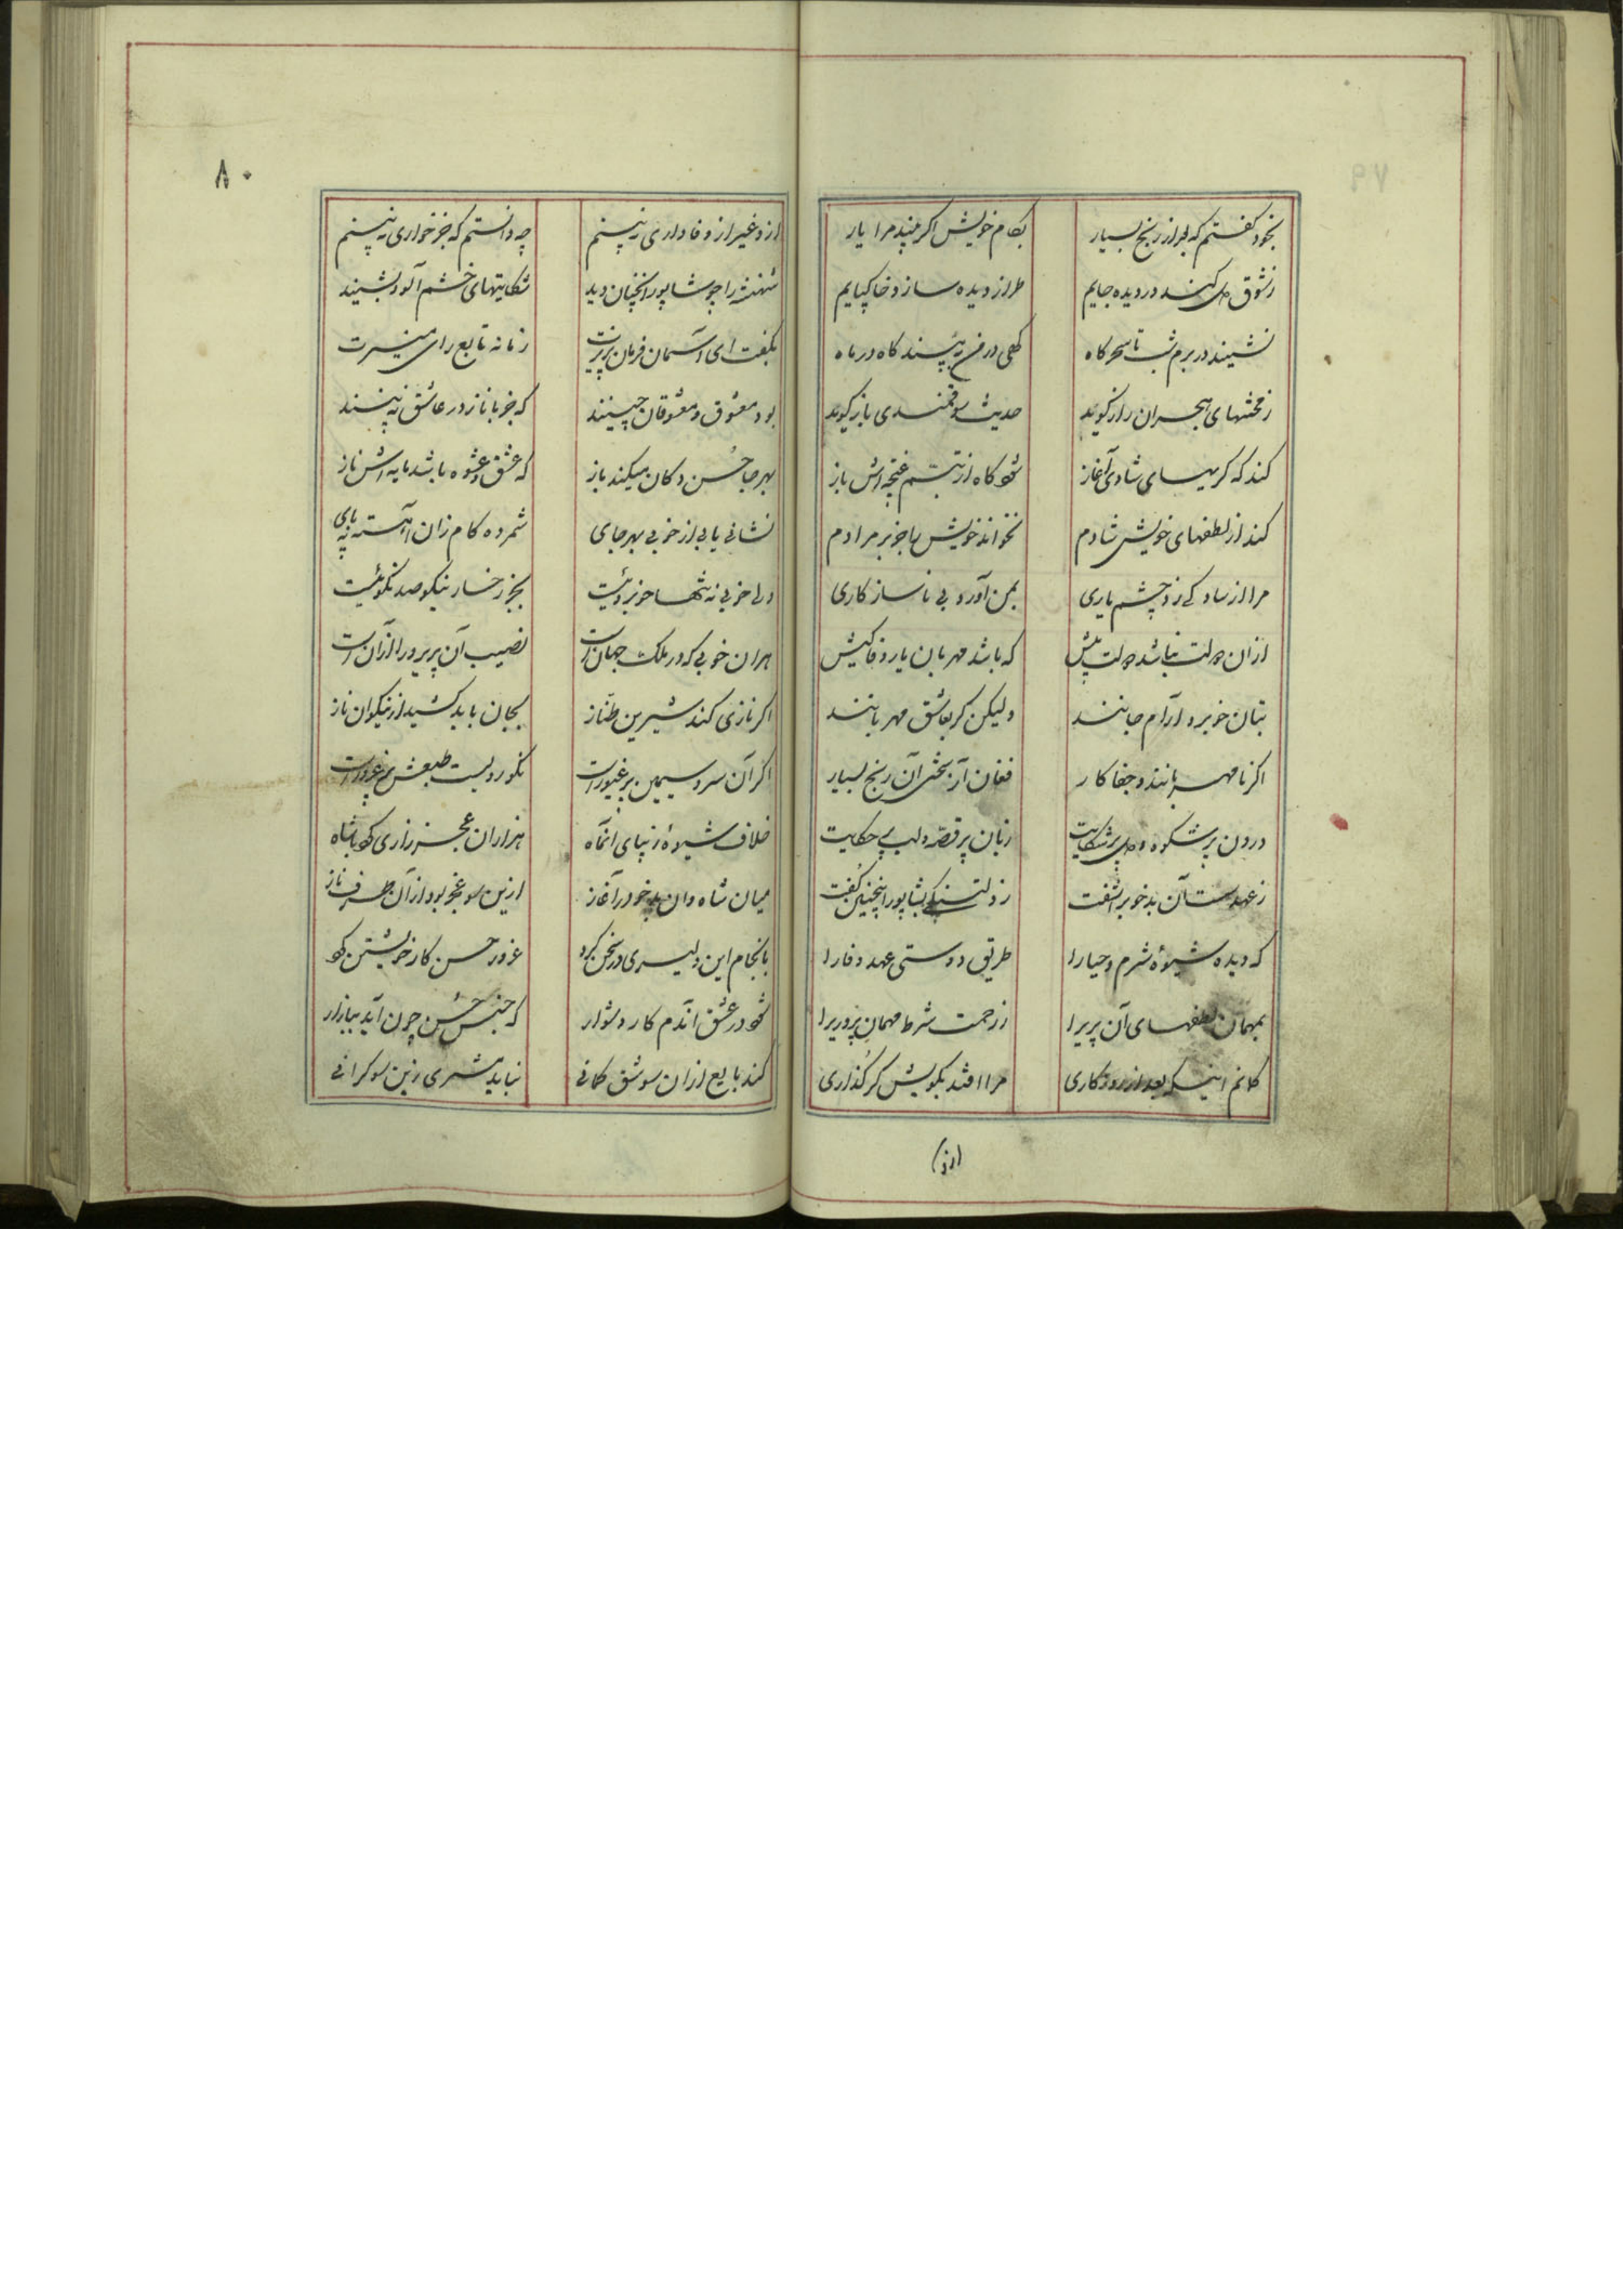 بخود گفتم که بعد از رنج بسیار بکام خویش اگر بیند مرا یار
ز شوق دل کند در دیده جایم طراز دیده سازد خاکپایم
نشیند در برم شب تا سحرگاه گهی در من به بیند گاه در ماه
ز محنتهای هجران راز گوید حدیث سوقمندی باز گوید
کند که گریهای شادی آغاز شود گاه از تبسم غنچه اش باز
کند از لطفهای خویش شادم نخواند خویش را جز بر مرادم
مرا از ساده کی زو چشم یاری بمن آورد بی ناسازکاری
ازان دولت نباشد دولت بیش که باشد مهربان یار وفاکیش
بتان خوبرو آرام جانند ولیکن گر بعاشق مهربانند
اگر نامهربانند و جفاکار فغان از سختی آن رنج بسیار
درون پر شکوه و دل پر شکایت زبان پر قصه و لب پر حکایت
ز عهد سست آن بدخو برآشفت ز دلتنگی بشاپور اینچنین گفت
که دیده شیوهٔ شرم و حیا را طریق دوستی عهد و وفا را
بمهمان لطفهای آن پریرا ز رحمت شرط مهمان پروریرا
گمانم اینکه بعد از روزکاری مرا افتد بکویش گر گذاری
(ازو)
۸۰
ازو غیر از وفاداری نه بینم چه دانستم که جز خواری نه بینم
شهنشه را چو شاپور آنچنان دید شکایتهای خشم آلود بشنید
بگفت ای آسمان فرمان پذیرت زمانه تابع رای منیرت
بود معشوق و معشوقان چنینند که خوبان از در عاشق نه بینند
بهر جا حسن دکان میکند باز که عشق و عشوه باشد مایه اش ناز
نشانی یابی از خوبی بهر جای شمرده کام زان آهسته نه پای
ولی خوبی نه تنها خوبروئیست بجز رخسار نیکو صد نکوئیست
هران خوبی که در ملک جهانست نصیب آن پریرو را ازآن است
اگر نازی کند شیرین طناز بجان باید کشید از نیکوان ناز
اگر آن سرو سیمین بر غیور است نکورویست طبعش پر غرور است
خلاف شیوهٔ زیبای آنماه هزاران عجز و زاری کرد با شاه
میان شاه و آن بدخو در آغاز ازین سو عجز بود از آن طرف ناز
بانجام این دلیری در سخن کرد غرور حسن کار خویشتن کرد
شود در عشق آندم کار دشوار که جنس حسن چون آید ببازار
کند بایع ازان سوشق کمانی نباید مشتری زین سو گرانی